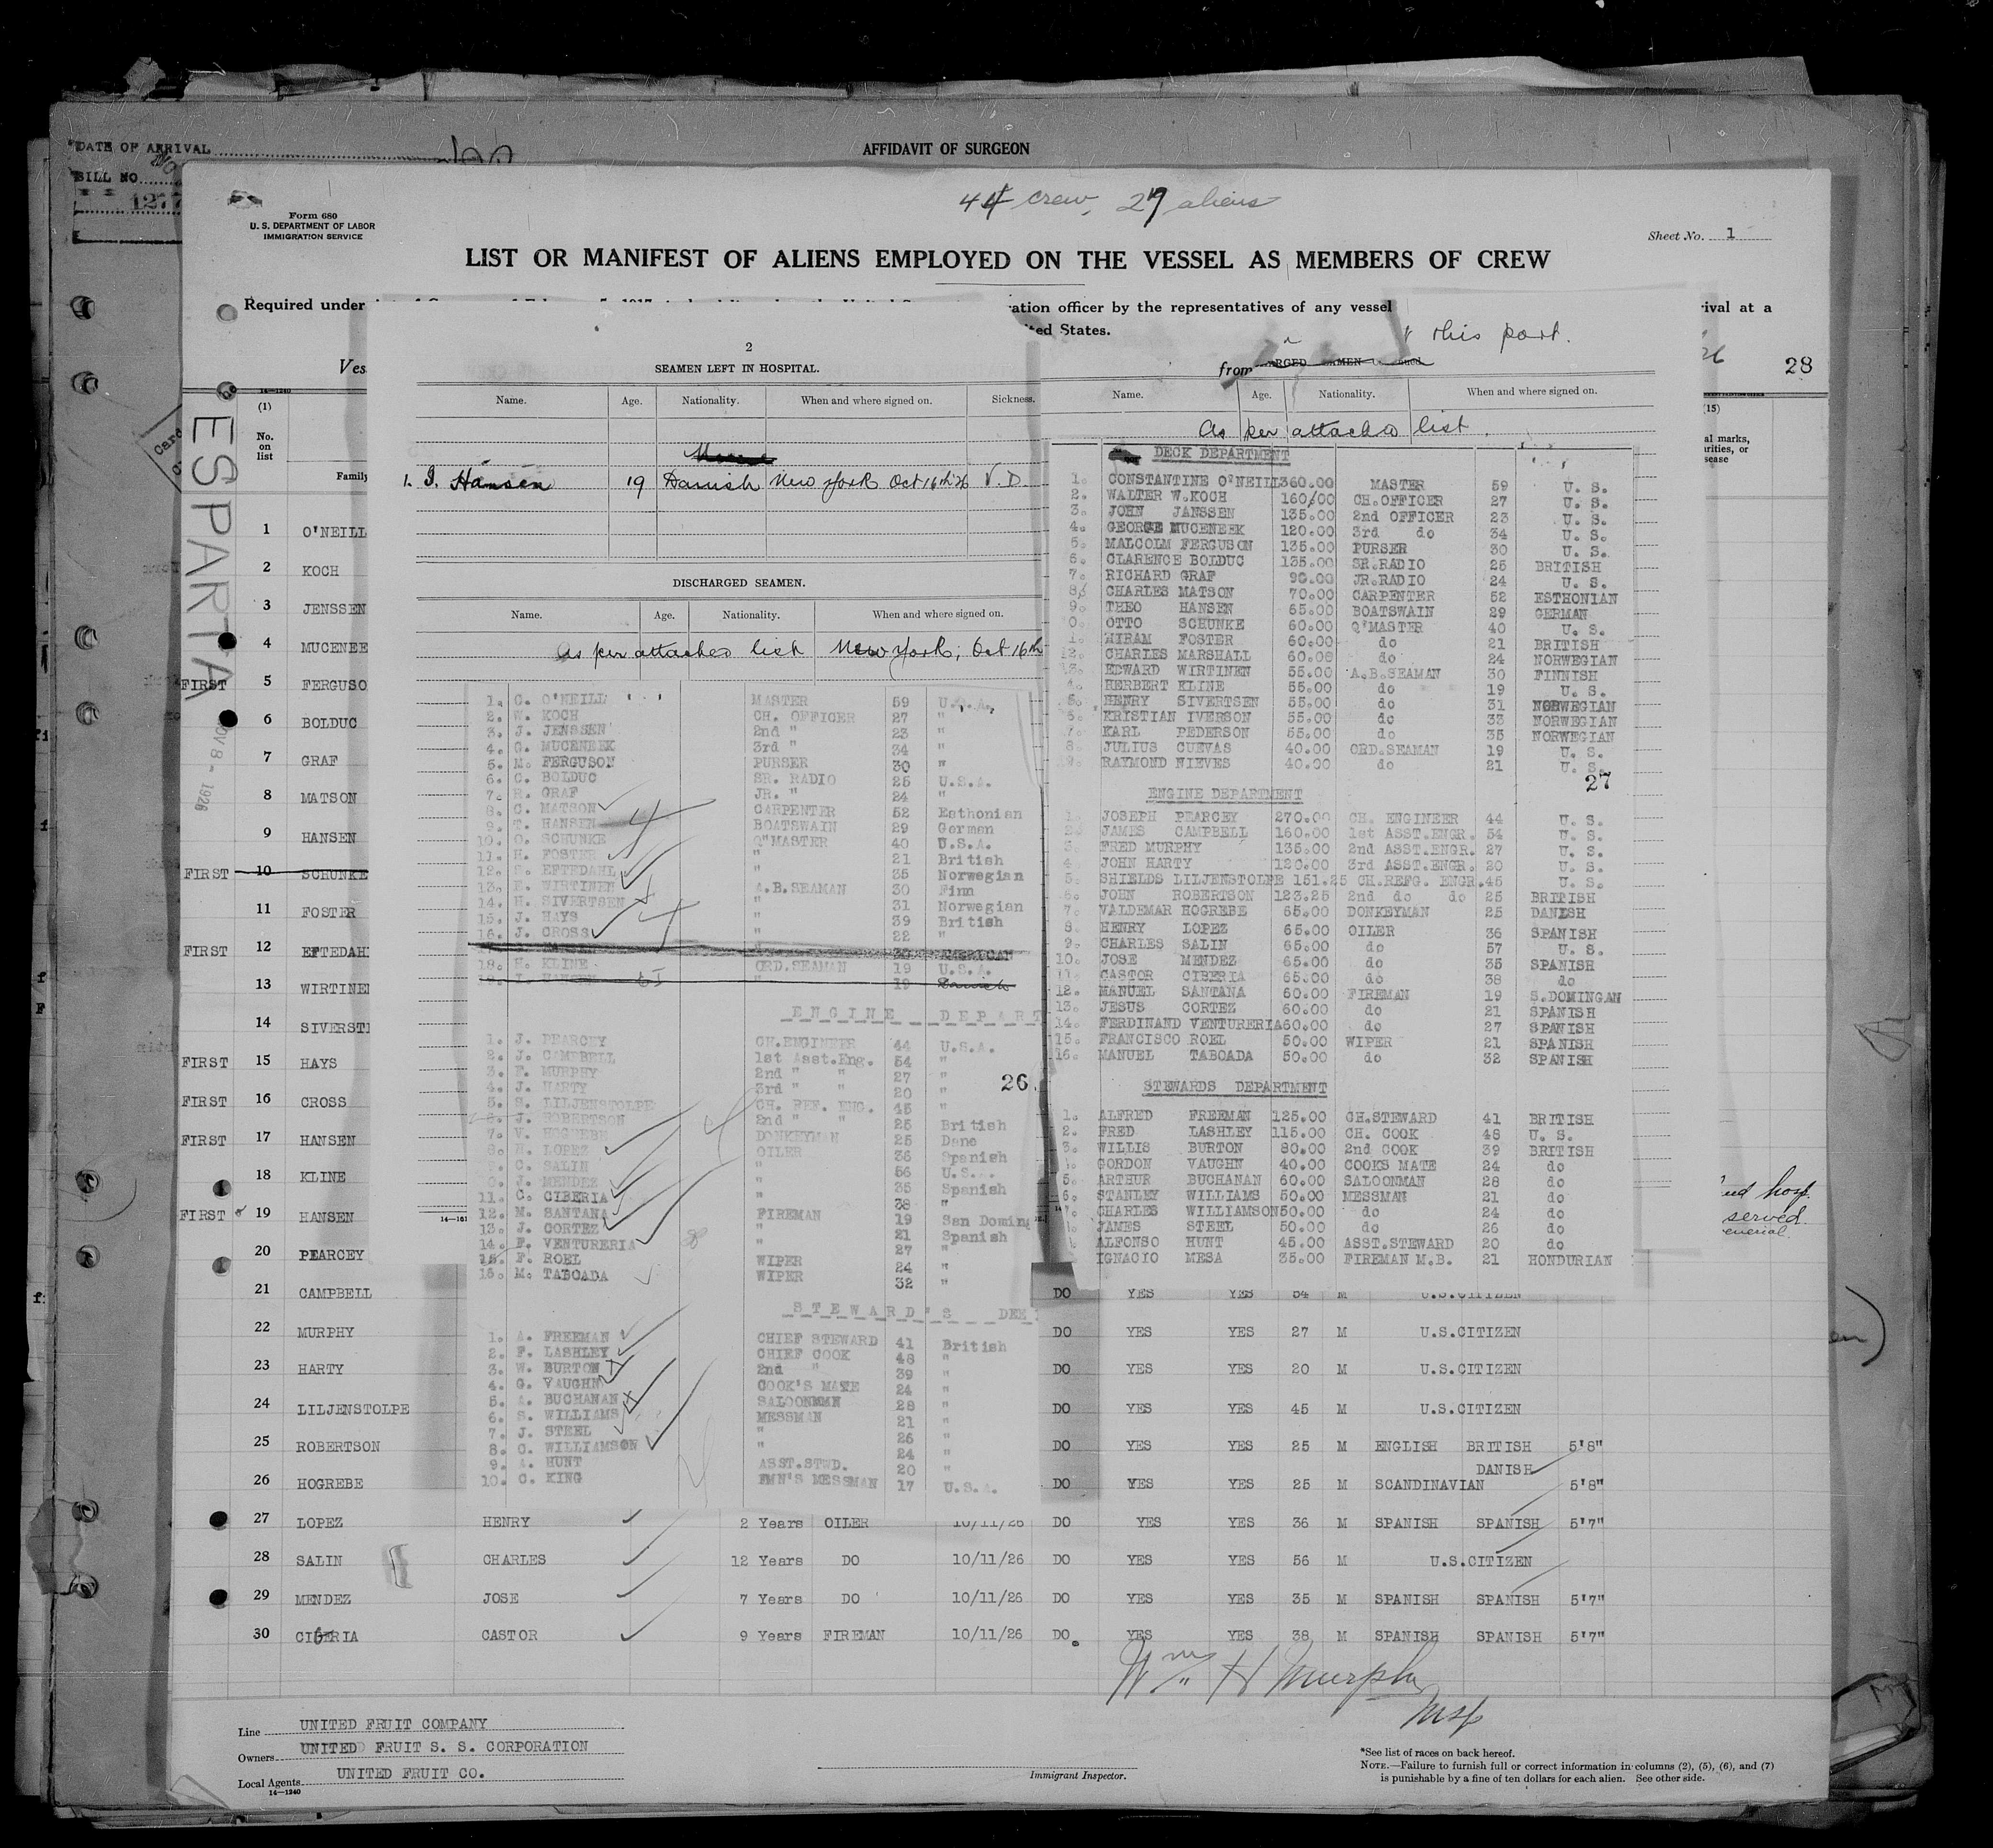 DATE OF ARRIVAL
AFFIDAVIT OF SURGEON
BILL NO.
1277
44 crew, 27 aliens
Form 680
U. S. DEPARTMENT OF LABOR
IMMIGRATION SERVICE
Sheet No. 1
LIST OR MANIFEST OF ALIENS EMPLOYED ON THE VESSEL AS MEMBERS OF CREW
Required under
ration officer by the representatives of any vessel
rival at a
ited States.
this port.
from
28
2
SEAMEN LEFT IN HOSPITAL.
Name. Age. Nationality. When and where signed on. Sickness.
1. I. Hansen 19 Danish New York Oct 16th 26 V. D.
DISCHARGED SEAMEN.
Name. Age. Nationality. When and where signed on.
As per attached list New York, Oct 16th
1. C. O'NEILL MASTER 59 U.S.A.
2. W. KOCH CH. OFFICER 27 "
3. J. JENSSEN 2nd " 23 "
4. G. MUCENEEK 3rd " 34 "
5. M. FERGUSON PURSER 30 "
6. C. BOLDUC SR. RADIO 25 U.S.A.
7. R. GRAF JR. " 24 "
8. C. MATSON CARPENTER 52 Esthonian
9. T. HANSEN BOATSWAIN 29 German
10. O. SCHUNKE Q"MASTER 40 U.S.A.
11. H. FOSTER " 21 British
12. S. EFTEDAHL " 35 Norwegian
13. E. WIRTINEN A.B.SEAMAN 30 Finn
14. H. SIVERTSEN " 31 Norwegian
15. J. HAYS " 39 British
16. J. CROSS " 22 "
AMERICAN
18. H. KLINE ORD.SEAMAN 19 U.S.A.
19 Danish
ENGINE DEPART
1. J. PEARCEY CH.ENGINEER 44 U.S.A.
2. J. CAMPBELL 1st Asst.Eng. 54 "
3. F. MURPHY 2nd " " 27 "
4. J. HARTY 3rd " " 20 "
5. S. LILJENSTOLPE CH. REF. ENG. 45 "
6. J. ROBERTSON 2nd " " 25 British
7. V. HOGREBE DONKEYMAN 25 Dane
8. H. LOPEZ OILER 36 Spanish
9. C. SALIN " 56 U.S.
J. MENDEZ " 35 Spanish
11. C. CIBERIA " 38 "
12. M. SANTANA FIREMAN 19 San Doming
13. J. CORTEZ " 21 Spanish
14. F. VENTURERIA " 27 "
15. F. ROEL WIPER 24 "
16. M. TABOADA WIPER 32 "
26.
STEWARD'S DEE
1. A. FREEMAN CHIEF STEWARD 41 British
2. F. LASHLEY CHIEF COOK 48 "
3. W. BURTON 2nd " 39 "
4. G. VAUGHN COOK'S MATE 24 "
5. A. BUCHANAN SALOONMAN 28 "
6. S. WILLIAMS MESSMAN 21 "
7. J. STEEL " 26 "
8. C. WILLIAMSON " 24 "
9. A. HUNT ASST.STWD. 20 "
10. C. KING FMN'S MESSMAN 17 U.S.A.
Name. Age. Nationality. When and where signed on.
As per attached list.
DECK DEPARTMENT
1. CONSTANTINE O'NEILL 360.00 MASTER 59 U. S.
2. WALTER W.KOCH 160.00 CH.OFFICER 27 U. S.
3. JOHN JANSSEN 135.00 2nd OFFICER 23 U. S.
4. GEORGE MUCENEEK 120.00 3rd do 34 U. S.
5. MALCOLM FERGUSON 135.00 PURSER 30 U. S.
6. CLARENCE BOLDUC 135.00 SR.RADIO 25 BRITISH
7. RICHARD GRAF 90.00 JR.RADIO 24 U. S.
8. CHARLES MATSON 70.00 CARPENTER 52 ESTHONIAN
9. THEO HANSEN 65.00 BOATSWAIN 29 GERMAN
0. OTTO SCHUNKE 60.00 Q'MASTER 40 U. S.
1. HIRAM FOSTER 60.00 do 21 BRITISH
12. CHARLES MARSHALL 60.00 do 24 NORWEGIAN
13. EDWARD WIRTINEN 55.00 A.B.SEAMAN 30 FINNISH
4. HERBERT KLINE 55.00 do 19 U. S.
5. HENRY SIVERTSEN 55.00 do 31 NORWEGIAN
6. KRISTIAN IVERSON 55.00 do 33 NORWEGIAN
7. KARL PEDERSON 55.00 do 35 NORWEGIAN
8. JULIUS CUEVAS 40.00 ORD.SEAMAN 19 U. S.
9. RAYMOND NIEVES 40.00 do 21 U. S.
27
ENGINE DEPARTMENT
1. JOSEPH PEARCEY 270.00 CH. ENGINEER 44 U. S.
2. JAMES CAMPBELL 160.00 1st ASST.ENGR. 54 U. S.
3. FRED MURPHY 135.00 2nd ASST.ENGR. 27 U. S.
4. JOHN HARTY 120.00 3rd ASST.ENGR. 20 U. S.
5. SHIELDS LILJENSTOLPE 151.25 CH.REFG. ENGR. 45 U. S.
6. JOHN ROBERTSON 123.25 2nd do do 25 BRITISH
7. VALDEMAR HOGREBE 65.00 DONKEYMAN 25 DANISH
8. HENRY LOPEZ 65.00 OILER 36 SPANISH
9. CHARLES SALIN 65.00 do 57 U. S.
10. JOSE MENDEZ 65.00 do 35 SPANISH
11. CASTOR CIBERIA 65.00 do 38 do
12. MANUEL SANTANA 60.00 FIREMAN 19 S.DOMINGAN
13. JESUS CORTEZ 60.00 do 21 SPANISH
14. FERDINAND VENTURERIA 60.00 do 27 SPANISH
15. FRANCISCO ROEL 50.00 WIPER 21 SPANISH
16. MANUEL TABOADA 50.00 do 32 SPANISH
STEWARDS DEPARTMENT
1. ALFRED FREEMAN 125.00 CH.STEWARD 41 BRITISH
2. FRED LASHLEY 115.00 CH. COOK 48 U. S.
3. WILLIS BURTON 80.00 2nd COOK 39 BRITISH
GORDON VAUGHN 40.00 COOKS MATE 24 do
5. ARTHUR BUCHANAN 60.00 SALOONMAN 28 do
6. STANLEY WILLIAMS 50.00 MESSMAN 21 do
CHARLES WILLIAMSON 50.00 do 24 do
JAMES STEEL 50.00 do 26 do
ALFONSO HUNT 45.00 ASST.STEWARD 20 do
IGNACIO MESA 35.00 FIREMAN M.B. 21 HONDURIAN
ESPARTA
NOV 8 - 1926
(1)
No. on list
Family
1 O'NEILL
2 KOCH
3 JENSSEN
4 MUCENEE
FIRST 5 FERGUSO
6 BOLDUC
7 GRAF
8 MATSON
9 HANSEN
FIRST 10 SCHUNKE
11 FOSTER
FIRST 12 EFTEDAH
13 WIRTINE
14 SIVERST
FIRST 15 HAYS
FIRST 16 CROSS
FIRST 17 HANSEN
18 KLINE
FIRST 19 HANSEN
20 PEARCEY
21 CAMPBELL DO YES YES 54 M U.S.CITIZEN
22 MURPHY DO YES YES 27 M U.S.CITIZEN
23 HARTY DO YES YES 20 M U.S.CITIZEN
24 LILJENSTOLPE DO YES YES 45 M U.S.CITIZEN
25 ROBERTSON DO YES YES 25 M ENGLISH BRITISH 5'8"
26 HOGREBE DO YES YES 25 M SCANDINAVIAN DANISH 5'8"
27 LOPEZ HENRY 2 Years OILER 10/11/26 DO YES YES 36 M SPANISH SPANISH 5'7"
28 SALIN CHARLES 12 Years DO 10/11/26 DO YES YES 56 M U.S.CITIZEN
29 MENDEZ JOSE 7 Years DO 10/11/26 DO YES YES 35 M SPANISH SPANISH 5'7"
30 CIBERIA CASTOR 9 Years FIREMAN 10/11/26 DO YES YES 38 M SPANISH SPANISH 5'7"
(15)
al marks,
rities, or
sease
hosp.
served.
enerial.
Wm H Murphy
Line UNITED FRUIT COMPANY
Owners UNITED FRUIT S. S. CORPORATION
Local Agents UNITED FRUIT CO.
14—1240
Immigrant Inspector.
*See list of races on back hereof.
NOTE.—Failure to furnish full or correct information in columns (2), (5), (6), and (7)
is punishable by a fine of ten dollars for each alien. See other side.